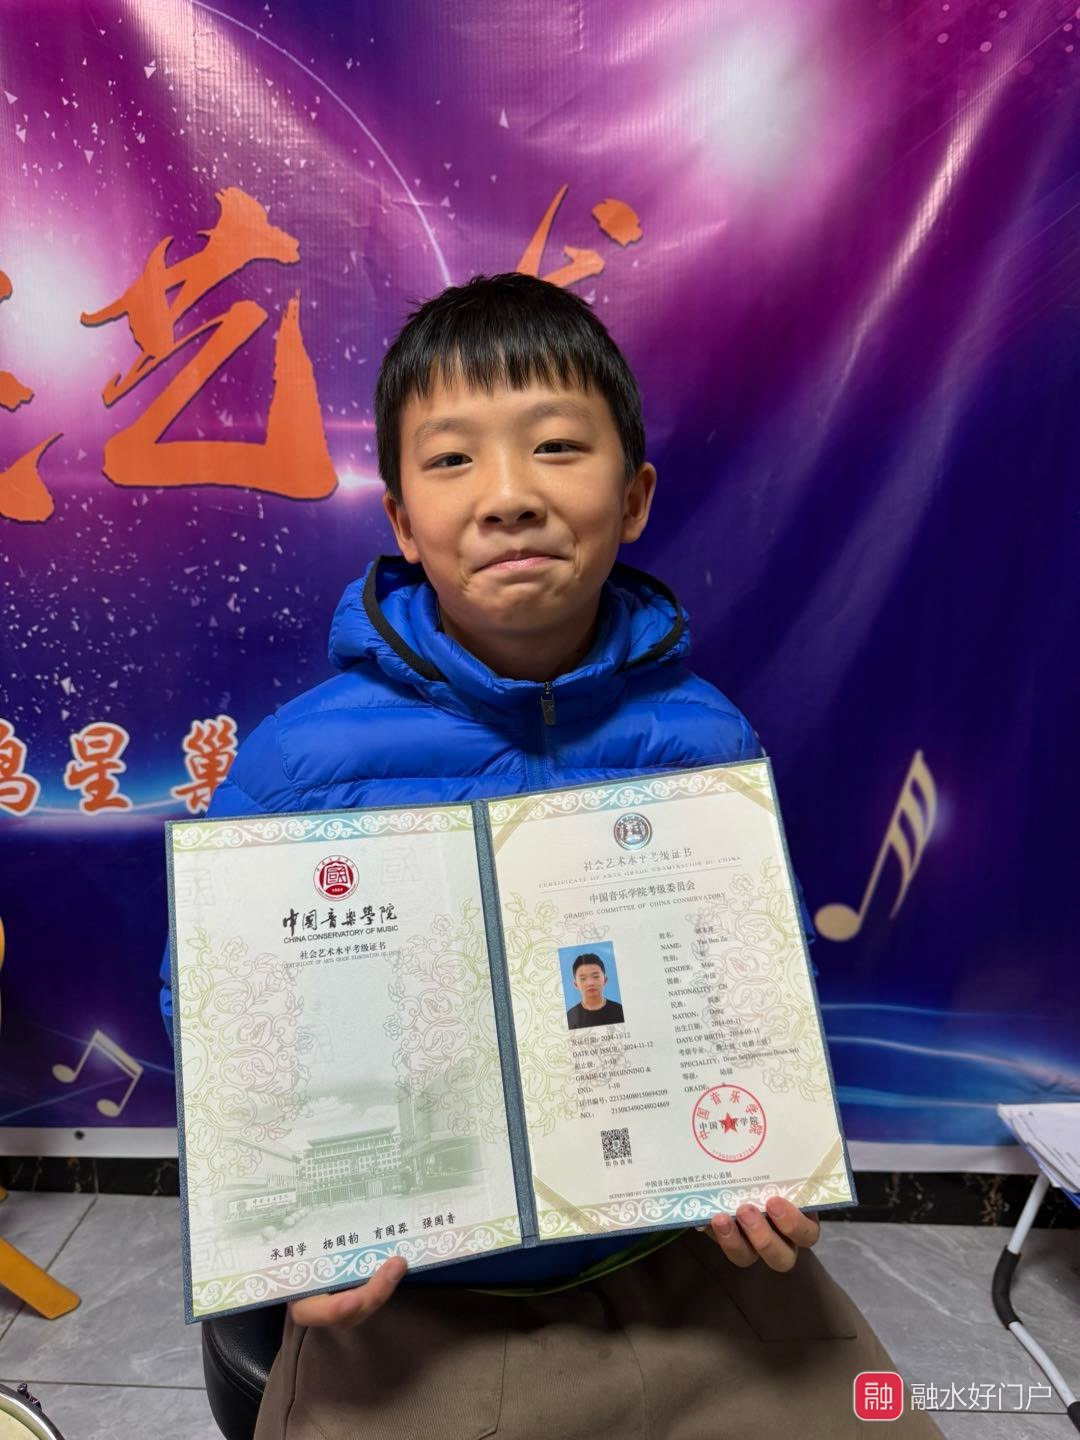 艺
鸿星巢
1964
中国音樂學院
CHINA CONSERVATORY OF MUSIC
社会艺术水平考级证书
CERTIFICATE OF ARTS GRADE EXAMINATION OF CHINA
中国音乐学院
承国学 扬国韵 育国器 强国音
社会艺术水平考级证书
CERTIFICATE OF ARTS GRADE EXAMINATION OF CHINA
中国音乐学院考级委员会
GRADING COMMITTEE OF CHINA CONSERVATORY
姓名:
NAME: Yao Ben Ze
性别: 男
GENDER: Male
国籍: 中国
NATIONALITY: CN
民族: 侗族
NATION: Dong
出生日期: 2014-05-11
DATE OF BIRTH: 2014-05-11
考级专业: 爵士鼓(电爵士鼓)
SPECIALITY: Drum Set(Electronic Drum Set)
等级: 陆级
GRADE: 6
发证日期: 2024-11-12
DATE OF ISSUE: 2024-11-12
起止级: 1-10
GRADE OF BEGINNING &
END: 1-10
证书编号: 221324080150694209
NO.: 213083490248024869
防伪查询
中国音乐学院
中国音乐学院
中国音乐学院考级艺术中心监制
SUPERVISED BY CHINA CONSERVATORY ARTS GRADE EXAMINATION CENTER
融 融水好门户